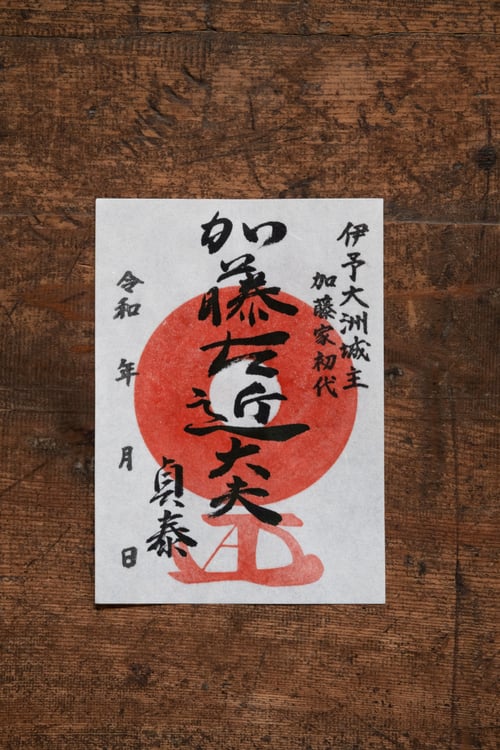 伊予大洲城主
加藤家初代
加藤左近大夫
貞泰
令和 年 月 日